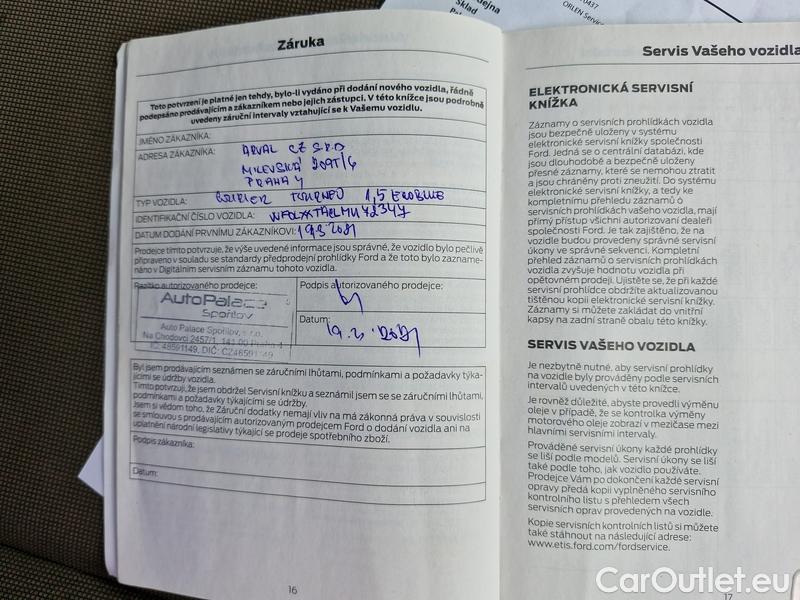 ejna
Sklad
0437
ORLEN Servic
Záruka
Toto potvrzení je platné jen tehdy, bylo-li vydáno při dodání nového vozidla, řádně
podepsáno prodávajícím a zákazníkem nebo jejich zástupci. V této knížce jsou podrobně
uvedeny záruční intervaly vztahující se k Vašemu vozidlu.
JMÉNO ZÁKAZNÍKA:
ADRESA ZÁKAZNÍKA: ARVAL CZ SRO
MILEVSKÁ
PRAHA 4
TYP VOZIDLA: COURIER TOURNEO 1,5 ECOBLUE
IDENTIFIKAČNÍ ČÍSLO VOZIDLA:
DATUM DODÁNÍ PRVNÍMU ZÁKAZNÍKOVI: 19.3.2021
Prodejce tímto potvrzuje, že výše uvedené informace jsou správné, že vozidlo bylo pečlivě
připraveno v souladu se standardy předprodejní prohlídky Ford a že toto bylo zaznamenáno
v Digitálním servisním záznamu tohoto vozidla.
Razítko autorizovaného prodejce:
AutoPalace
Spořilov
Auto Palace Spořilov, s.r.o.
Na Chodovci 2457/1, 141 00 Praha 4
IČ: 48591149, DIČ: CZ48591149
Podpis autorizovaného prodejce:
Datum:
19.3.2021
Byl jsem prodávajícím seznámen se záručními lhůtami, podmínkami a požadavky týka-
jícími se údržby vozidla.
Tímto potvrzuji, že jsem obdržel Servisní knížku a seznámil jsem se se záručními lhůtami,
podmínkami a požadavky týkajícími se údržby.
Jsem si vědom toho, že Záruční dodatky nemají vliv na má zákonná práva v souvislosti
se smlouvou s prodávajícím autorizovaným prodejcem Ford o dodání vozidla ani na
uplatnění národní legislativy týkající se prodeje spotřebního zboží.
Podpis zákazníka:
Datum:
16
Servis Vašeho vozidla
ELEKTRONICKÁ SERVISNÍ
KNÍŽKA
Záznamy o servisních prohlídkách vozidla
jsou bezpečně uloženy v systému
elektronické servisní knížky společnosti
Ford. Jedná se o centrální databázi, kde
jsou dlouhodobě a bezpečně uloženy
přesné záznamy, které se nemohou ztratit
a jsou chráněny proti zneužití. Do systému
elektronické servisní knížky, a tedy ke
kompletnímu přehledu záznamů o
servisních prohlídkách vašeho vozidla, mají
přímý přístup všichni autorizovaní dealeři
společnosti Ford. Je tak zajištěno, že na
vozidle budou provedeny správné servisní
úkony ve správné sekvenci. Kompletní
přehled záznamů o servisních prohlídkách
vozidla zvyšuje hodnotu vozidla při
opětovném prodeji. Ujistěte se, že při každé
servisní prohlídce obdržíte aktualizovanou
tištěnou kopii elektronické servisní knížky.
Záznamy si můžete zakládat do vnitřní
kapsy na zadní straně obalu této knížky.
SERVIS VAŠEHO VOZIDLA
Je nezbytně nutné, aby servisní prohlídky
na vozidle byly prováděny podle servisních
intervalů uvedených v této knížce.
Je rovněž důležité, abyste provedli výměnu
oleje v případě, že se kontrolka výměny
motorového oleje zobrazí v mezičase mezi
hlavními servisními intervaly.
Prováděné servisní úkony každé prohlídky
se liší podle modelů. Servisní úkony se liší
také podle toho, jak vozidlo používáte.
Prodejce Vám po dokončení každé servisní
opravy předá kopii vyplněného servisního
kontrolního listu s přehledem všech
servisních oprav provedených na vozidle.
Kopie servisních kontrolních listů si můžete
také stáhnout na následující adrese:
www.etis.ford.com/fordservice.
17
CarOutlet.eu